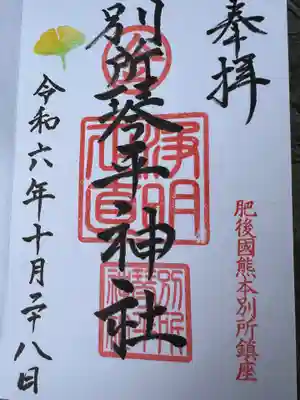 奉拝
肥後國熊本別所鎮座
別所琴平神社
浄明
正直
令和六年十月二十八日